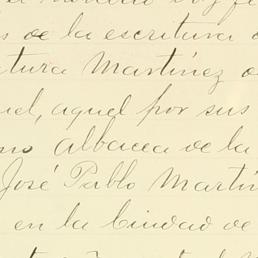 s de la escritura
tura Martínez
el, aquel por sus
albacea de la
José Pablo Martín
en la Ciudad de